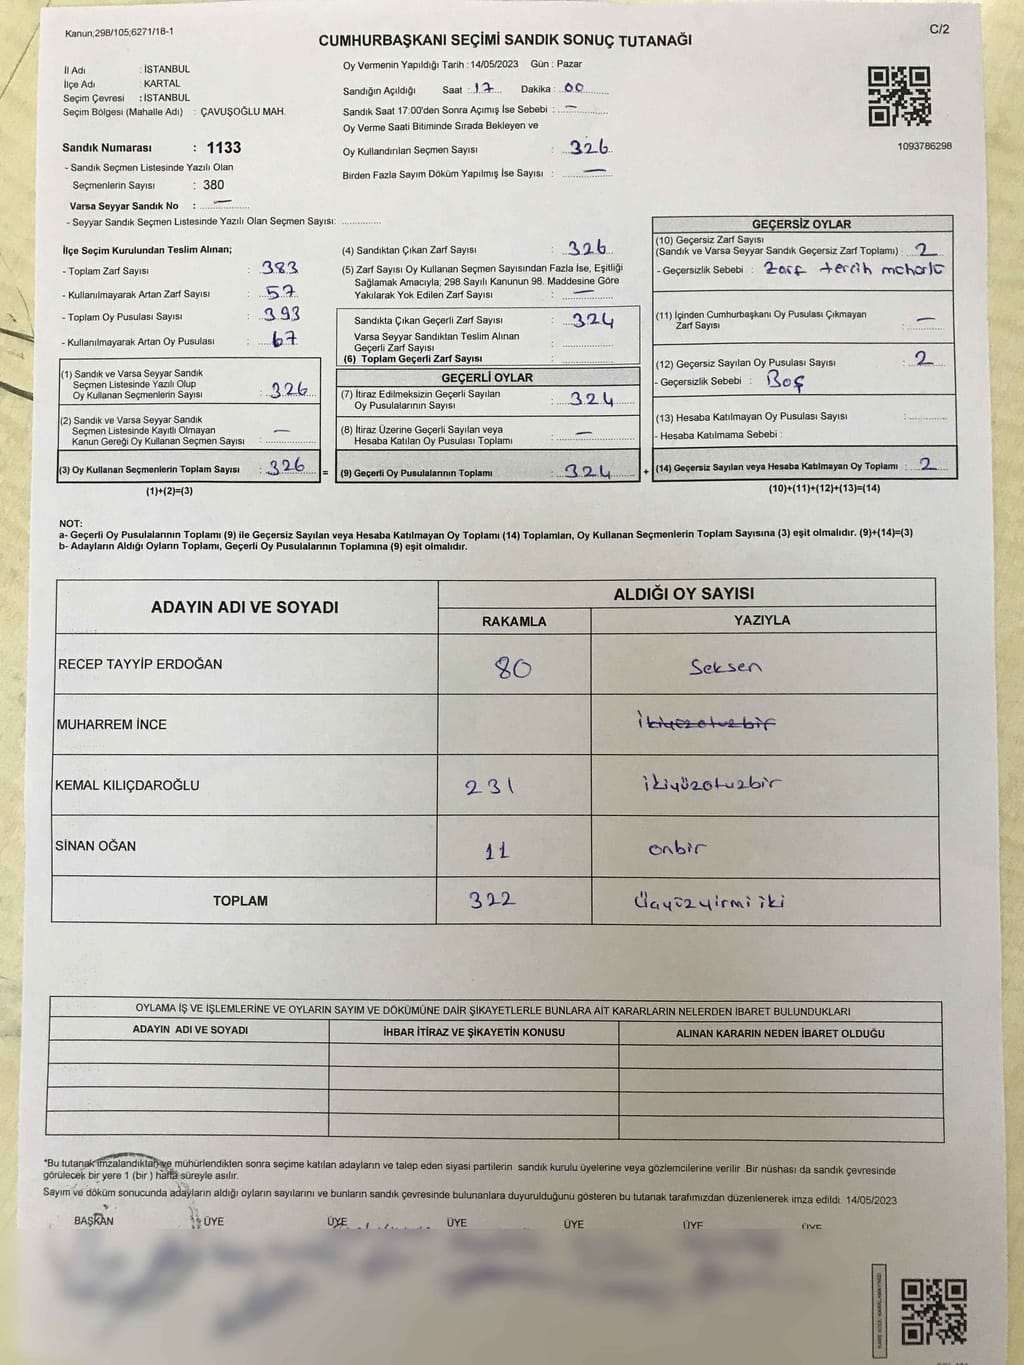 Kanun;298/105;6271/18-1
C/2
CUMHURBAŞKANI SEÇİMİ SANDIK SONUÇ TUTANAĞI
İl Adı : İSTANBUL
İlçe Adı : KARTAL
Seçim Çevresi : İSTANBUL
Seçim Bölgesi (Mahalle Adı) : ÇAVUŞOĞLU MAH.
Sandık Numarası : 1133
- Sandık Seçmen Listesinde Yazılı Olan
Seçmenlerin Sayısı : 380
Varsa Seyyar Sandık No : —
- Seyyar Sandık Seçmen Listesinde Yazılı Olan Seçmen Sayısı: ..............
Oy Vermenin Yapıldığı Tarih : 14/05/2023 Gün : Pazar
Sandığın Açıldığı Saat : 17 Dakika : 00
Sandık Saat 17:00'den Sonra Açımış İse Sebebi : —
Oy Verme Saati Bitiminde Sırada Bekleyen ve
Oy Kullandırılan Seçmen Sayısı : 326
Birden Fazla Sayım Döküm Yapılmış İse Sayısı : —
1093786298
İlçe Seçim Kurulundan Teslim Alınan;
- Toplam Zarf Sayısı : 383
- Kullanılmayarak Artan Zarf Sayısı : 57
- Toplam Oy Pusulası Sayısı : 393
- Kullanılmayarak Artan Oy Pusulası : 67
(1) Sandık ve Varsa Seyyar Sandık
Seçmen Listesinde Yazılı Olup
Oy Kullanan Seçmenlerin Sayısı : 326
(2) Sandık ve Varsa Seyyar Sandık
Seçmen Listesinde Kayıtlı Olmayan
Kanun Gereği Oy Kullanan Seçmen Sayısı : —
(3) Oy Kullanan Seçmenlerin Toplam Sayısı : 326 =
(1)+(2)=(3)
(4) Sandıktan Çıkan Zarf Sayısı : 326
(5) Zarf Sayısı Oy Kullanan Seçmen Sayısından Fazla İse, Eşitliği
Sağlamak Amacıyla, 298 Sayılı Kanunun 98. Maddesine Göre
Yakılarak Yok Edilen Zarf Sayısı : —
Sandıkta Çıkan Geçerli Zarf Sayısı : 324
Varsa Seyyar Sandıktan Teslim Alınan
Geçerli Zarf Sayısı :
(6) Toplam Geçerli Zarf Sayısı :
GEÇERLİ OYLAR
(7) İtiraz Edilmeksizin Geçerli Sayılan
Oy Pusulalarının Sayısı : 324
(8) İtiraz Üzerine Geçerli Sayılan veya
Hesaba Katılan Oy Pusulası Toplamı : —
(9) Geçerli Oy Pusulalarının Toplamı : 324 +
GEÇERSİZ OYLAR
(10) Geçersiz Zarf Sayısı
(Sandık ve Varsa Seyyar Sandık Geçersiz Zarf Toplamı) : 2
- Geçersizlik Sebebi : Zarf tercih
(11) İçinden Cumhurbaşkanı Oy Pusulası Çıkmayan
Zarf Sayısı : —
(12) Geçersiz Sayılan Oy Pusulası Sayısı : 2
- Geçersizlik Sebebi : Boş
(13) Hesaba Katılmayan Oy Pusulası Sayısı :
- Hesaba Katılmama Sebebi :
(14) Geçersiz Sayılan veya Hesaba Katılmayan Oy Toplamı : 2
(10)+(11)+(12)+(13)=(14)
NOT:
a- Geçerli Oy Pusulalarının Toplamı (9) ile Geçersiz Sayılan veya Hesaba Katılmayan Oy Toplamı (14) Toplamları, Oy Kullanan Seçmenlerin Toplam Sayısına (3) eşit olmalıdır. (9)+(14)=(3)
b- Adayların Aldığı Oyların Toplamı, Geçerli Oy Pusulalarının Toplamına (9) eşit olmalıdır.
ADAYIN ADI VE SOYADI
ALDIĞI OY SAYISI
RAKAMLA YAZIYLA
RECEP TAYYİP ERDOĞAN 80 Seksen
MUHARREM İNCE ikiyüzotuzbir
KEMAL KILIÇDAROĞLU 231 ikiyüzotuzbir
SİNAN OĞAN 11 onbir
TOPLAM 322 Üçyüzyirmi iki
OYLAMA İŞ VE İŞLEMLERİNE VE OYLARIN SAYIM VE DÖKÜMÜNE DAİR ŞİKAYETLERLE BUNLARA AİT KARARLARIN NELERDEN İBARET BULUNDUKLARI
ADAYIN ADI VE SOYADI İHBAR İTİRAZ VE ŞİKAYETİN KONUSU ALINAN KARARIN NEDEN İBARET OLDUĞU
*Bu tutanak imzalandıktan ve mühürlendikten sonra seçime katılan adayların ve talep eden siyasi partilerin sandık kurulu üyelerine veya gözlemcilerine verilir .Bir nüshası da sandık çevresinde
görülecek bir yere 1 (bir ) hafta süreyle asılır.
Sayım ve döküm sonucunda adayların aldığı oyların sayılarını ve bunların sandık çevresinde bulunanlara duyurulduğunu gösteren bu tutanak tarafımızdan düzenlenerek imza edildi. 14/05/2023
BAŞKAN ÜYE ÜYE ÜYE ÜYE ÜYE ÜYE